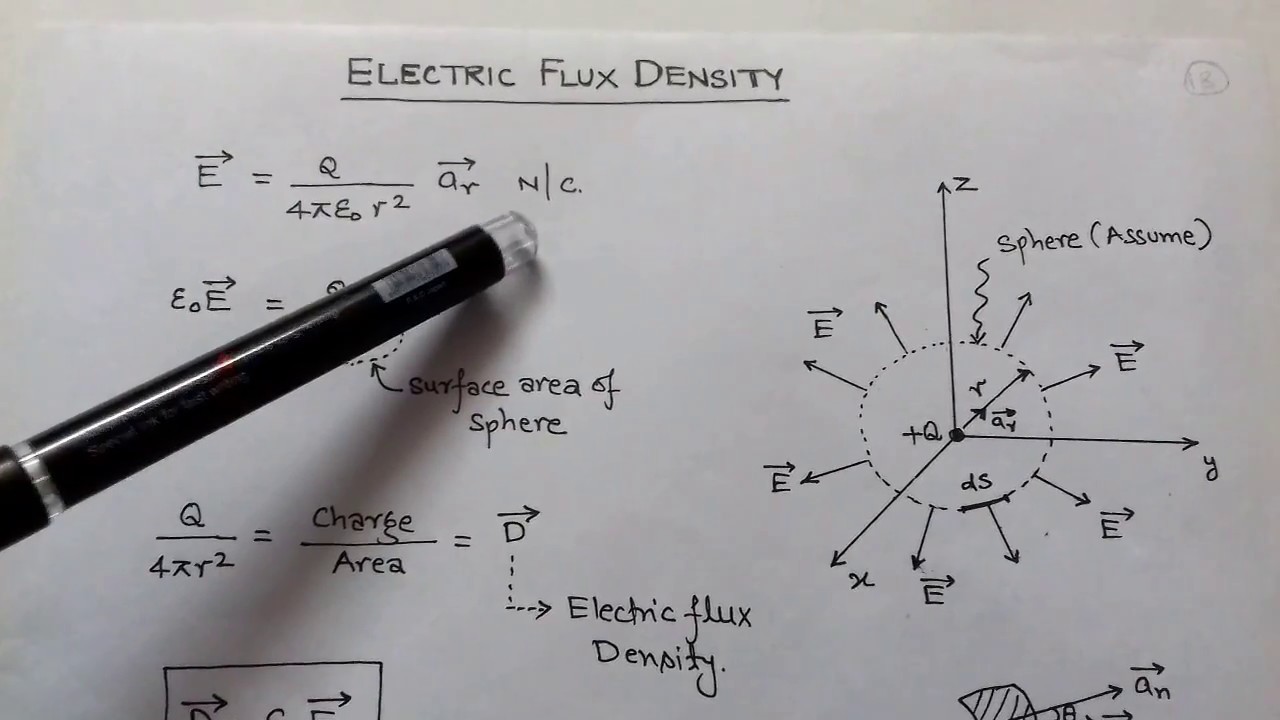 ELECTRIC FLUX DENSITY
13
E⃗ = Q / 4πε₀ r² a⃗r N/C.
ε₀E⃗ =
surface area of
sphere
Q / 4πr² = Charge / Area = D⃗
Electric flux
Density.
z
Sphere (Assume)
E⃗
E⃗
r
a⃗r
+Q
y
E⃗
dS
E⃗
x
E⃗
a⃗n
θ